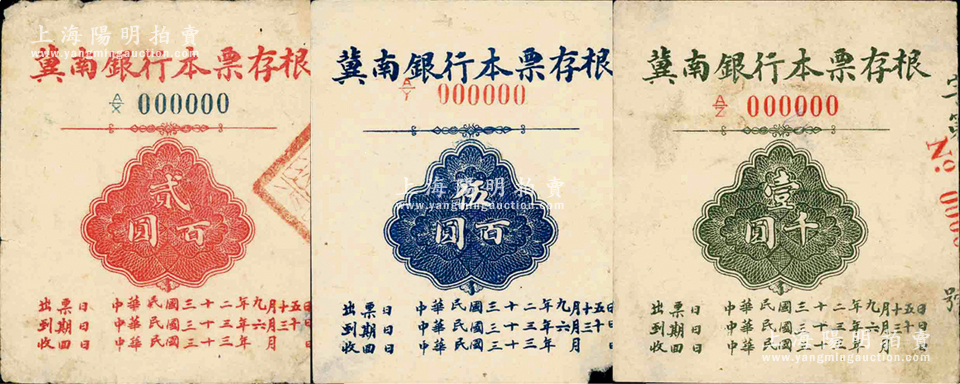 上海陽明拍賣
www.yangmingauction.com
冀南銀行本票存根
A/X 000000
貳百圓
出票日 中華民國三十二年九月十五日
到期日 中華民國三十三年六月三十日
收回日 中華民國三十三年 月 日
冀南銀行本票存根
A/Y 000000
上海陽明拍賣
www.yangmingauction.com
伍百圓
出票日 中華民國三十二年九月十五日
到期日 中華民國三十三年六月三十日
收回日 中華民國三十三年 月 日
冀南銀行本票存根
A/Z 000000
壹千圓
字第
No. 000
號
出票日 中華民國三十二年九月十五日
到期日 中華民國三十三年六月三十日
收回日 中華民國三十三年 月 日
上海陽明拍賣
www.yangmingauction.com